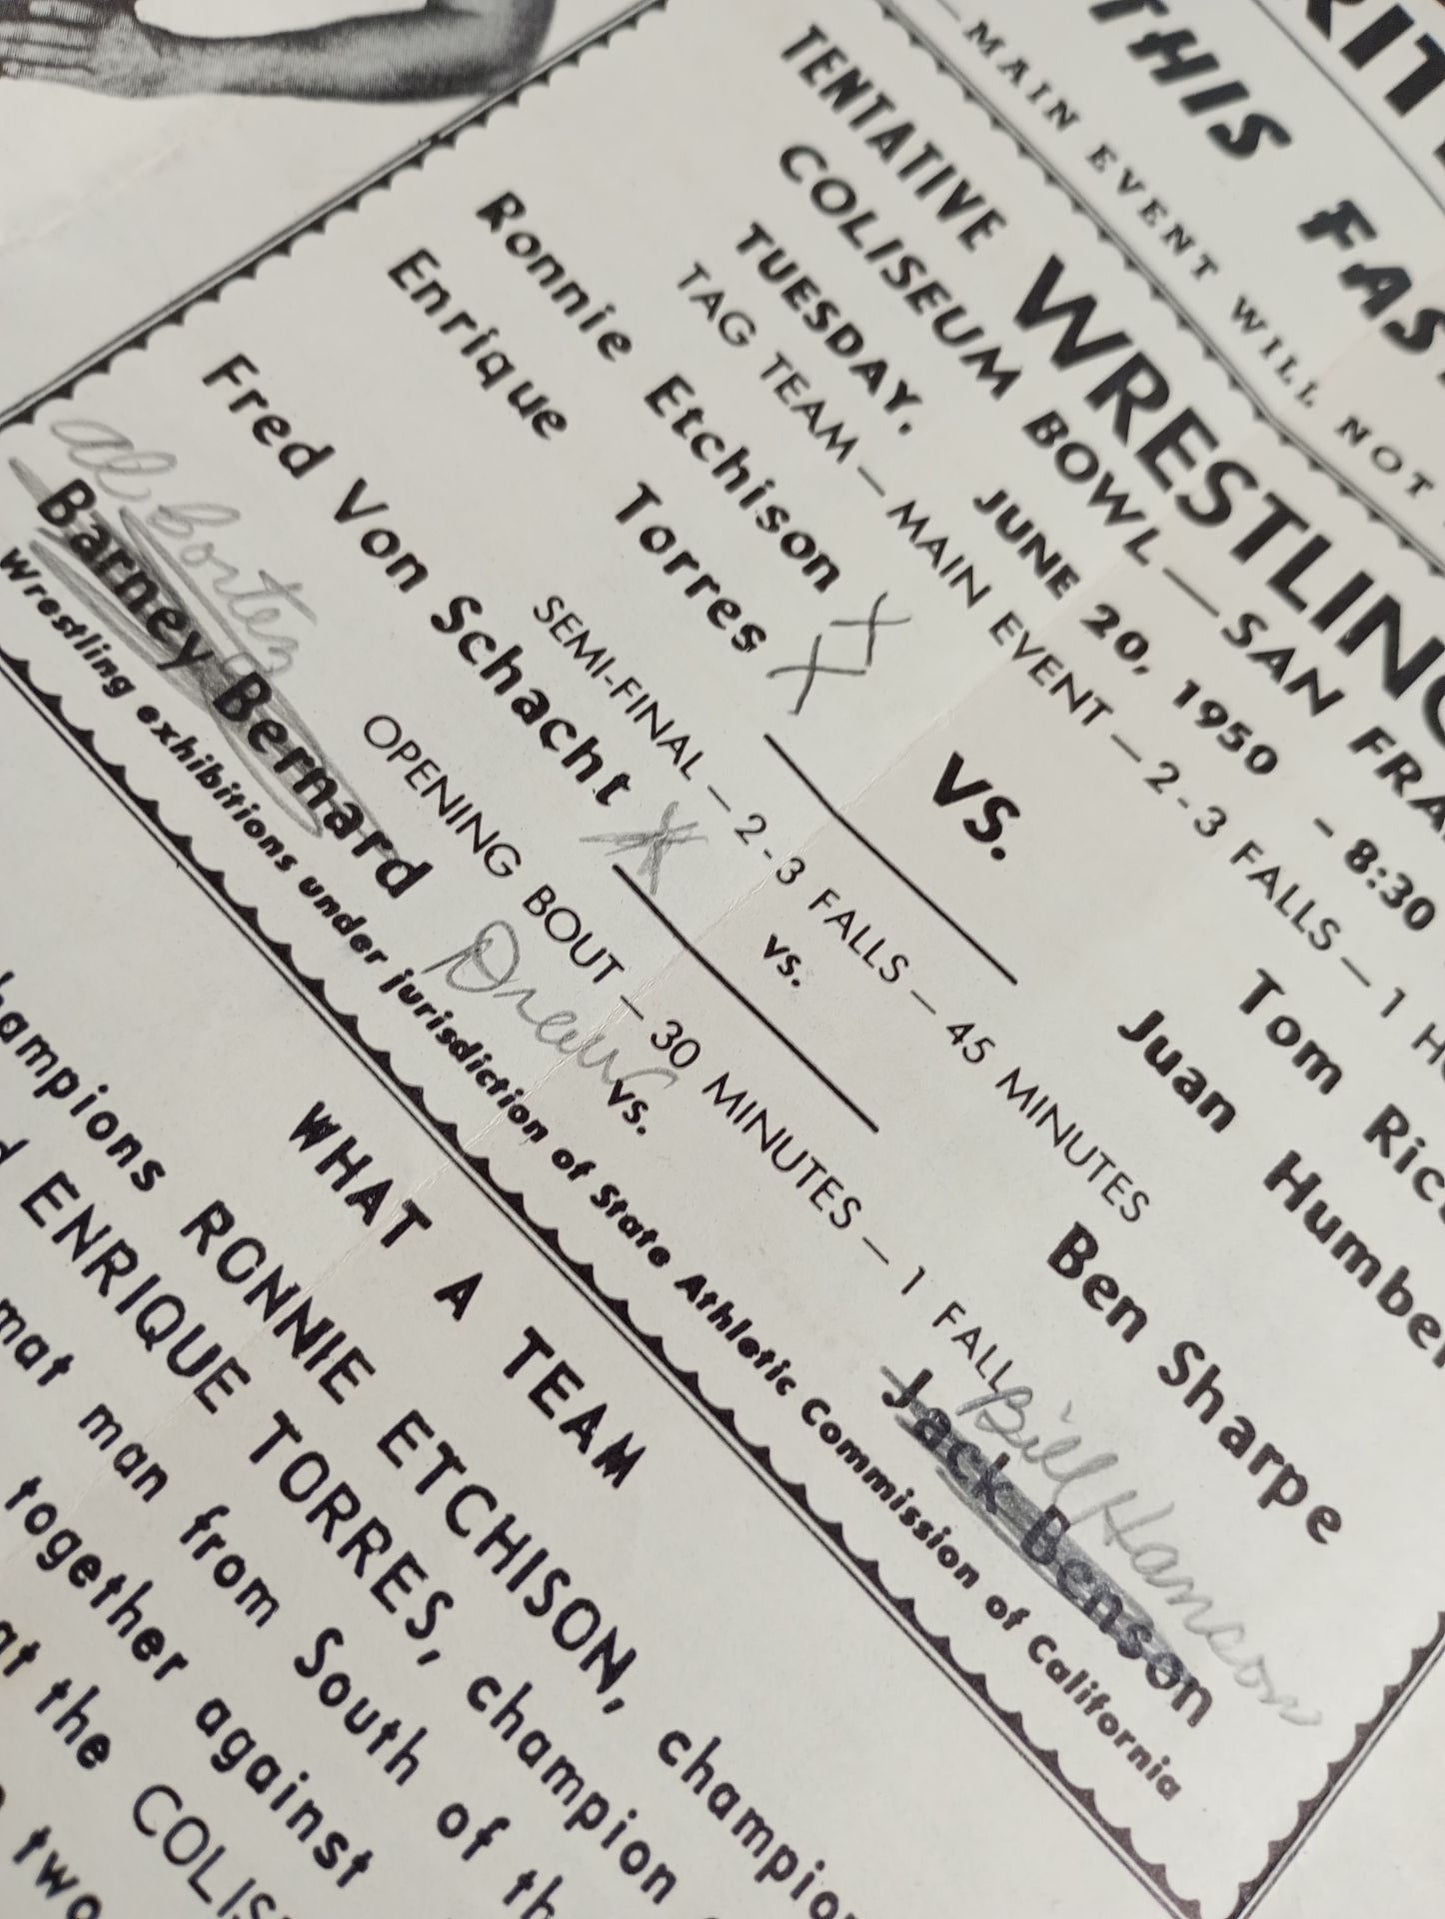 THIS FAS
MAIN EVENT WILL NOT
TENTATIVE WRESTLING
COLISEUM BOWL — SAN FRA
TUESDAY, JUNE 20, 1950 - 8:30
TAG TEAM — MAIN EVENT — 2-3 FALLS — 1 H
Ronnie Etchison X Tom Ric
Enrique Torres X vs. Juan Humber
SEMI-FINAL — 2-3 FALLS — 45 MINUTES
Fred Von Schacht X vs. Ben Sharpe
OPENING BOUT — 30 MINUTES — 1 FALL
Al Bortez Draw Bill Hanson
Barney Bernard vs. Jack Benson
Wrestling exhibitions under jurisdiction of State Athletic Commission of California
WHAT A TEAM
hampions RONNIE ETCHISON, champion
d ENRIQUE TORRES, champion
mat man from South of th
together against
at the COLIS
two